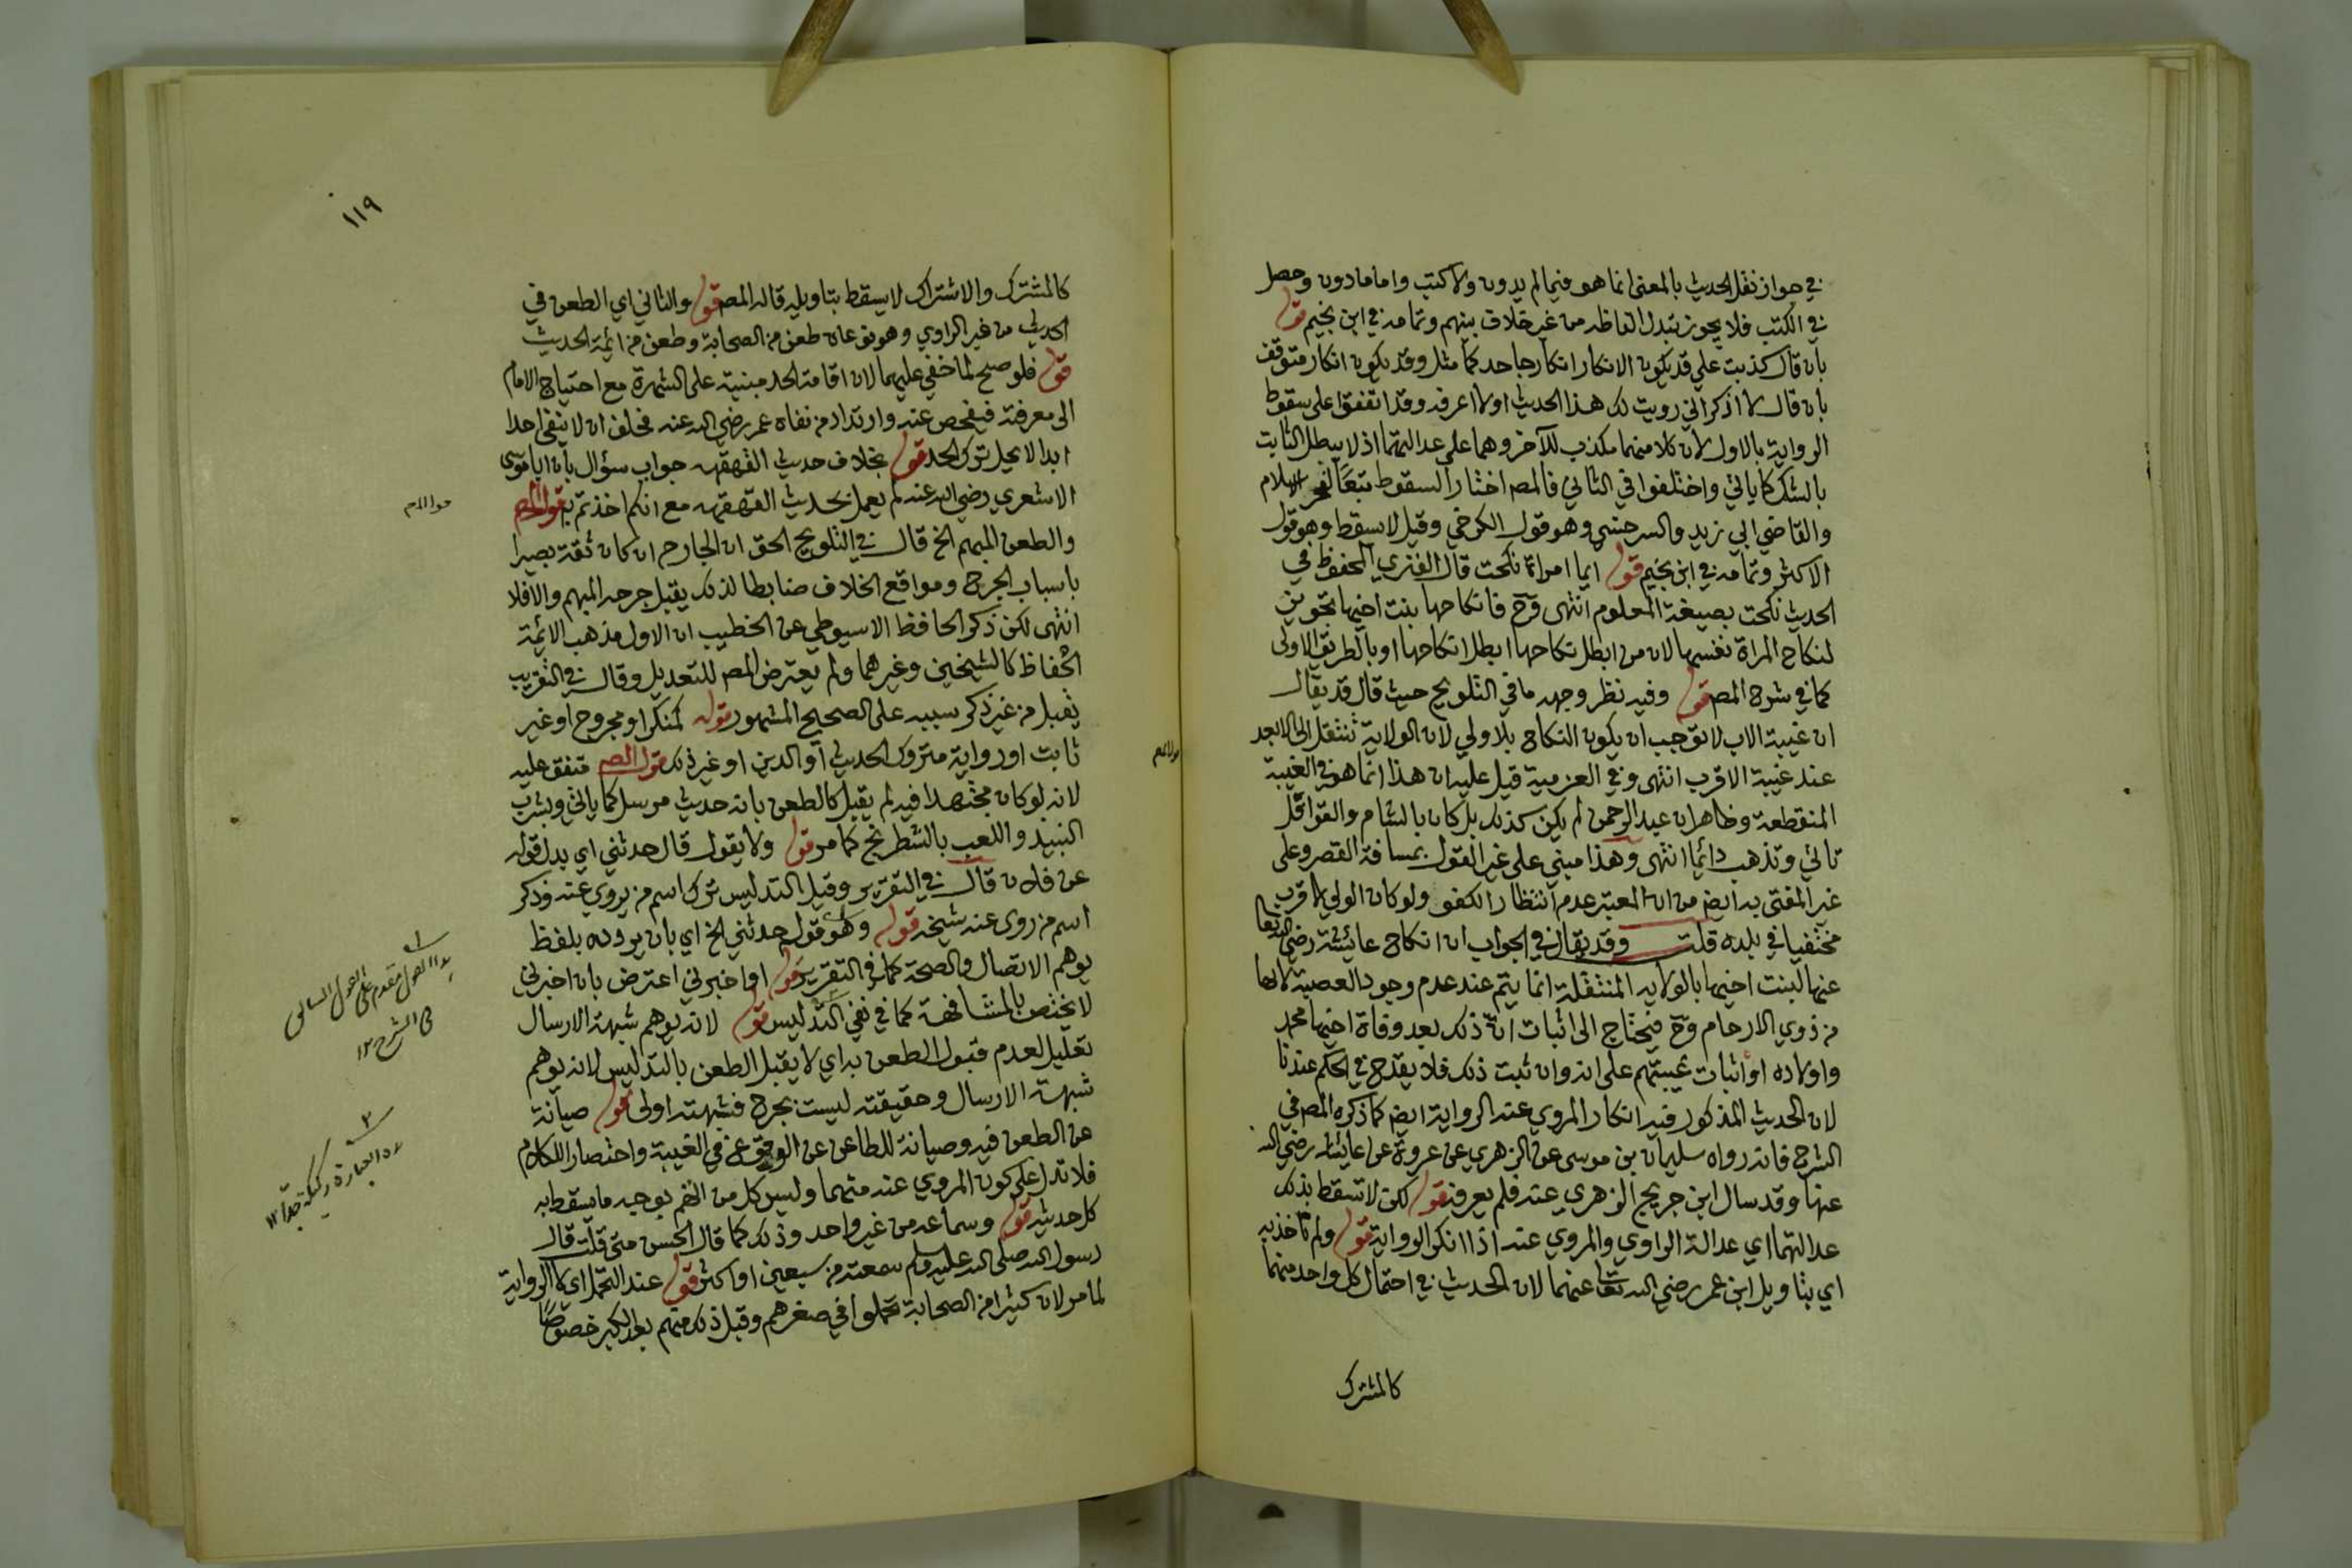 في جواز نقل الحديث بالمعنى انما هو فيما لم يدون ولا كتب واما ما دون وحصل
في الكتب فلا يجوز تبدل الفاظه من غير خلاف بينهم وتمامه في ابن نجيم قوله
بان قال كذبت علي قد يكون الانكار انكار جاحد كما مثل وقد يكون انكار متوقف
بان قال لا اذكر اني رويت لك هذا الحديث او لا اعرفه وقد اتفقوا على سقوط
الرواية بالاول لان كلا منهما مكذب للآخر وهما على عدالتهما اذ لا يبطل الثابت
بالشك كما ياتي واختلفوا في الثاني فالمصـ اختار السقوط تبعا لفخر الاسلام
والقاضي ابي زيد والسرخسي وهو قول الكرخي وقيل لا يسقط وهو قول
الاكثر وتمامه في ابن نجيم قوله ايما امراة نكحت قال الفنري المحفوظ في
الحديث نكحت بصيغة المعلوم انتهى وح فانكاحها بنت اخيها تجويز
لنكاح المراة نفسها لان من ابطل نكاحها ابطل انكاحها او بالطريق الاولى
كما في شرح المصـ قوله وفيه نظر وجهه ما في التلويح حيث قال قد يقال
ان غيبة الاب لا توجب ان يكون النكاح بلا ولي لان الولاية تنتقل الى الابعد
عند غيبة الاقرب انتهى وفي العزمية قيل عليه ان هذا انما هو في الغيبة
المنقطعة وظاهر ان عبد الرحمن لم يكن كذلك بل كان بالشام والقوافل
تاتي وتذهب دائما انتهى وهذا مبني على غير القول بمسافة القصر وعلى
غير المفتى به ايضـ من ان المعتبر عدم انتظار الكفو ولو كان الولي الاقرب
مختفيا في بلده قلت وقد يقال في الجواب ان انكاح عائشة رضي الله تعا
عنها لبنت اخيها بالولايه المنتقلة انما يتم عند عدم وجود العصبة لانها
من ذوي الارحام وح فيحتاج الى اثبات ان ذلك بعد وفاة اخيها محمد
واولاده او اثبات غيبتهم على انه وان ثبت ذلك فلا يقدح في الحكم عندنا
لان الحديث المذكور فيه انكار المروي عنه الرواية ايضـ كما ذكره المصـ في
الشرح فانه رواه سليمان بن موسى عن الزهري عن عروة عن عايشه رضي الله
عنها وقد سال ابن جريج الزهري عنه فلم يعرفه قوله لكن لا تسقط بذلك
عدالتهما اي عدالة الراوي والمروي عنه اذا انكر الرواية قوله ولم تاخذ به
اي بتاويل ابن عمر رضي الله تعا عنهما لان الحديث في احتمال كل واحد منهما
كالمشترك
١١٩
كالمشترك والاشتراك لا يسقط بتاويله قاله المصـ قوله والثاني اي الطعن في
الحديث من غير الراوي وهو نوعان طعن من الصحابة وطعن من ائمة الحديث
قوله فلو صح لما خفي عليهما لان اقامة الحد مبنية على الشهرة مع احتياج الامام
الى معرفة فيفحص عنه وارتداد من نفاه عمر رضي الله عنه فحلف ان لا ينفي احدا
ابدا لا يحل ترك الحد قوله بخلاف حديث القهقهه جواب سؤال بان ابا موسى
الاشعري رضي الله عنه لم يعمل بحديث القهقهه مع انكم اخذتم به قول المصـ
والطعن المبهم الخ قال في التلويح الحق ان الجارح ان كان ثقة بصيرا
باسباب الجرح ومواقع الخلاف ضابطا لذلك يقبل جرحه المبهم والا فلا
انتهى لكن ذكر الحافظ الاسيوطي عن الخطيب ان الاول مذهب الائمة
الحفاظ كالشيخين وغيرهما ولم يعترض المصـ للتعديل وقال في التقريب
يقبل من غير ذكر سببه على الصحيح المشهور قوله كمنكر او مجروح او غير
ثابت او رواية متروك الحديث او الدين او غير ذلك قول المصـ متفق عليه
لانه لو كان مجتهدا فيه لم يقبل كالطعن بانه حديث مرسل كما ياتي وبشرب
النبيذ واللعب بالشطرنج كما مر قوله ولا يقول قال حدثني اي بدل قوله
عن فلان قال في التقرير وقيل التدليس ترك اسم من يروي عنه وذكر
اسم من روى عنه شيخه قوله وهو قول حدثني الخ اي بان يروده بلفظ
يوهم الاتصال والصحة كما في التقرير قوله او اخبرني اعترض بان اخبرني
لا يختص بالمشافهة كما في نفي التدليس قوله لانه يوهم شبهة الارسال
تعليل لعدم قبول الطعن به اي لا يقبل الطعن بالتدليس لانه يوهم
شبهة الارسال وحقيقته ليست بجرح فشبهته اولى قوله صيانة
عن الطعن فيه وصيانة للطاعن عن الوقوع في الغيبة واختصارا للكلام
فلا تدل على كون المروي عنه متهما وليس كل من اتهم بوجه ما يسقط به
كل حديثه قوله وسماعه من غير واحد وذلك كما قال الحسن متى قلت قال
رسول الله صلى الله عليه وسلم سمعته من سبعين او اكثر قوله عند التحمل اي كالرواية
لما مر لان كثيرا من الصحابة تحملوا في صغرهم وقبل ذلك منهم بعد الكبر خصوصا
١
هذا القول مقدم على القول السابق
في الشرح ١٢
٢
هذه العبارة ركيكة جدا ١٢